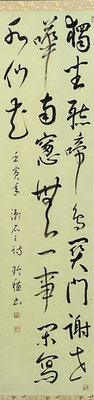 獨坐聽啼鳥関門謝世
嘩南窓無一事閑寫
水仙花
壬寅年 漱石之詩 書